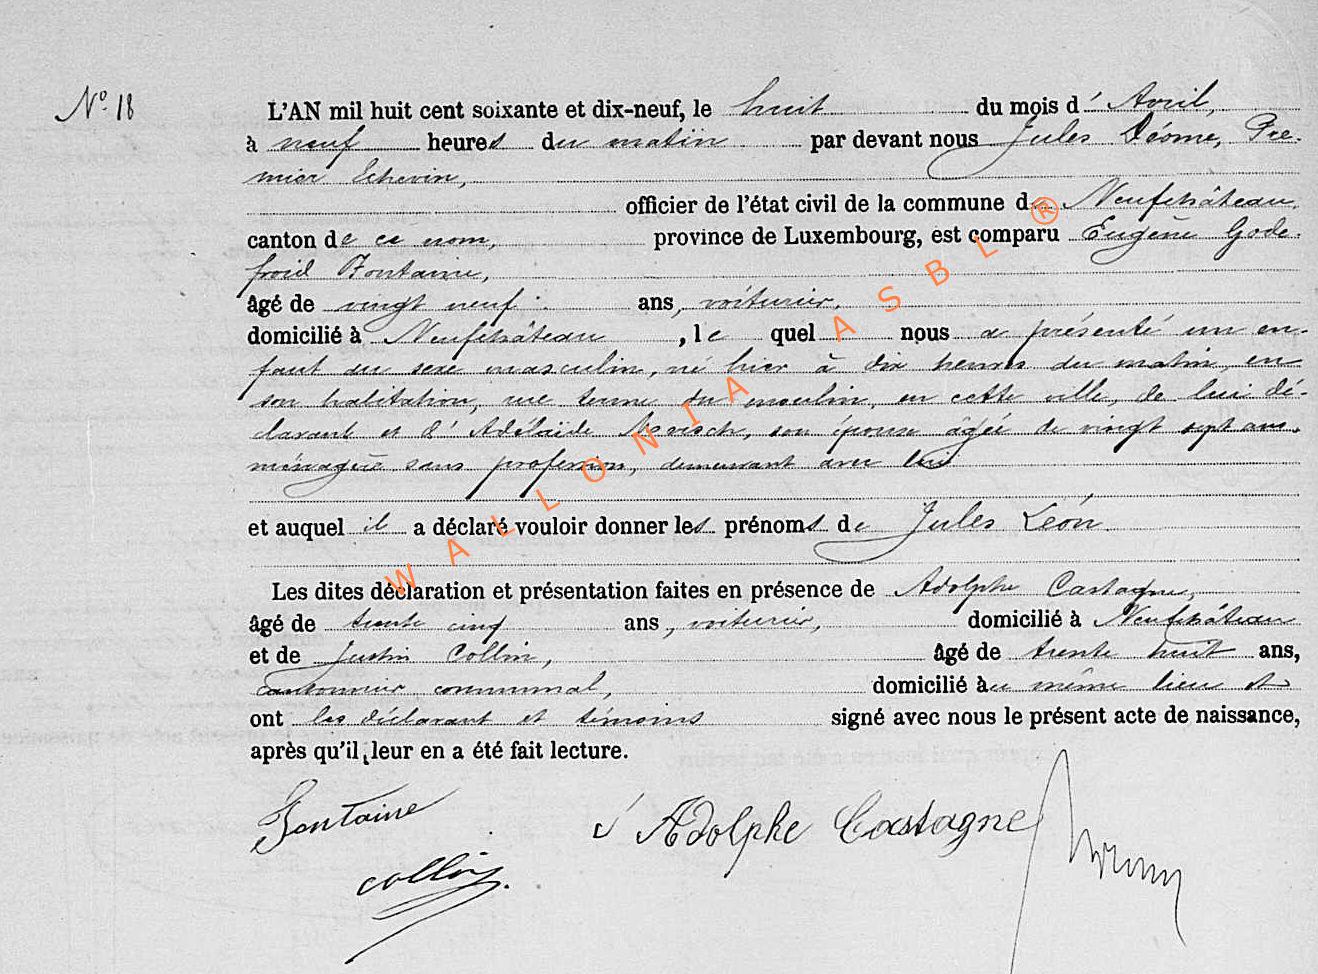 N° 18
L'AN mil huit cent soixante et dix-neuf, le huit du mois d' Avril,
à neuf heures du matin par devant nous Jules Déome, Pre-
mier Echevin,
officier de l'état civil de la commune de Neufchâteau,
canton de ce nom, province de Luxembourg, est comparu Eugène Gode-
froid Fontaine,
âgé de vingt neuf ans, voiturier,
domicilié à Neufchâteau, lequel nous a présenté un en-
fant du sexe masculin, né hier à dix heures du matin, en
son habitation, rue terme du moulin, en cette ville, de lui dé-
clarant et d'Adélaïde son épouse âgée de vingt sept ans,
ménagère sans profession, demeurant avec lui
et auquel il a déclaré vouloir donner les prénoms de Jules Léon
Les dites déclaration et présentation faites en présence de Adolphe Castagne,
âgé de trente cinq ans, voiturier, domicilié à Neufchâteau
et de Justin Collin, âgé de trente huit ans,
cantonnier communal, domicilié au même lieu et
ont les déclarant et témoins signé avec nous le présent acte de naissance,
après qu'il leur en a été fait lecture.
Fontaine
Adolphe Castagne
Collin
WALLONIA ASBL ®